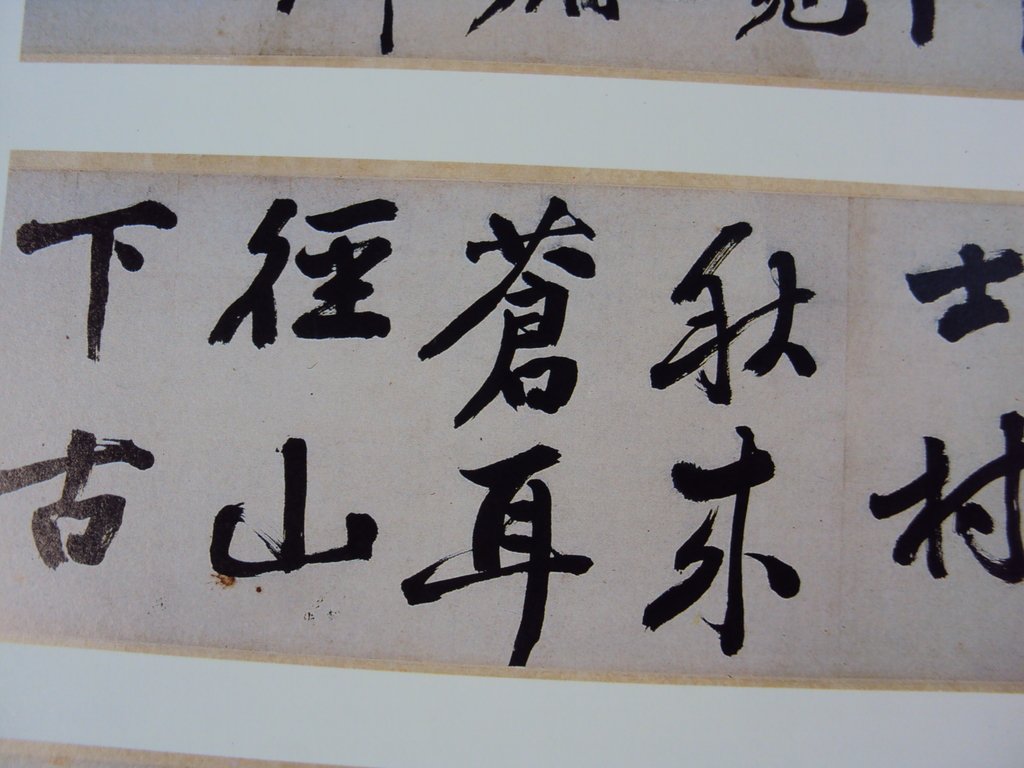 士村
秋來
蒼耳
徑山
下古